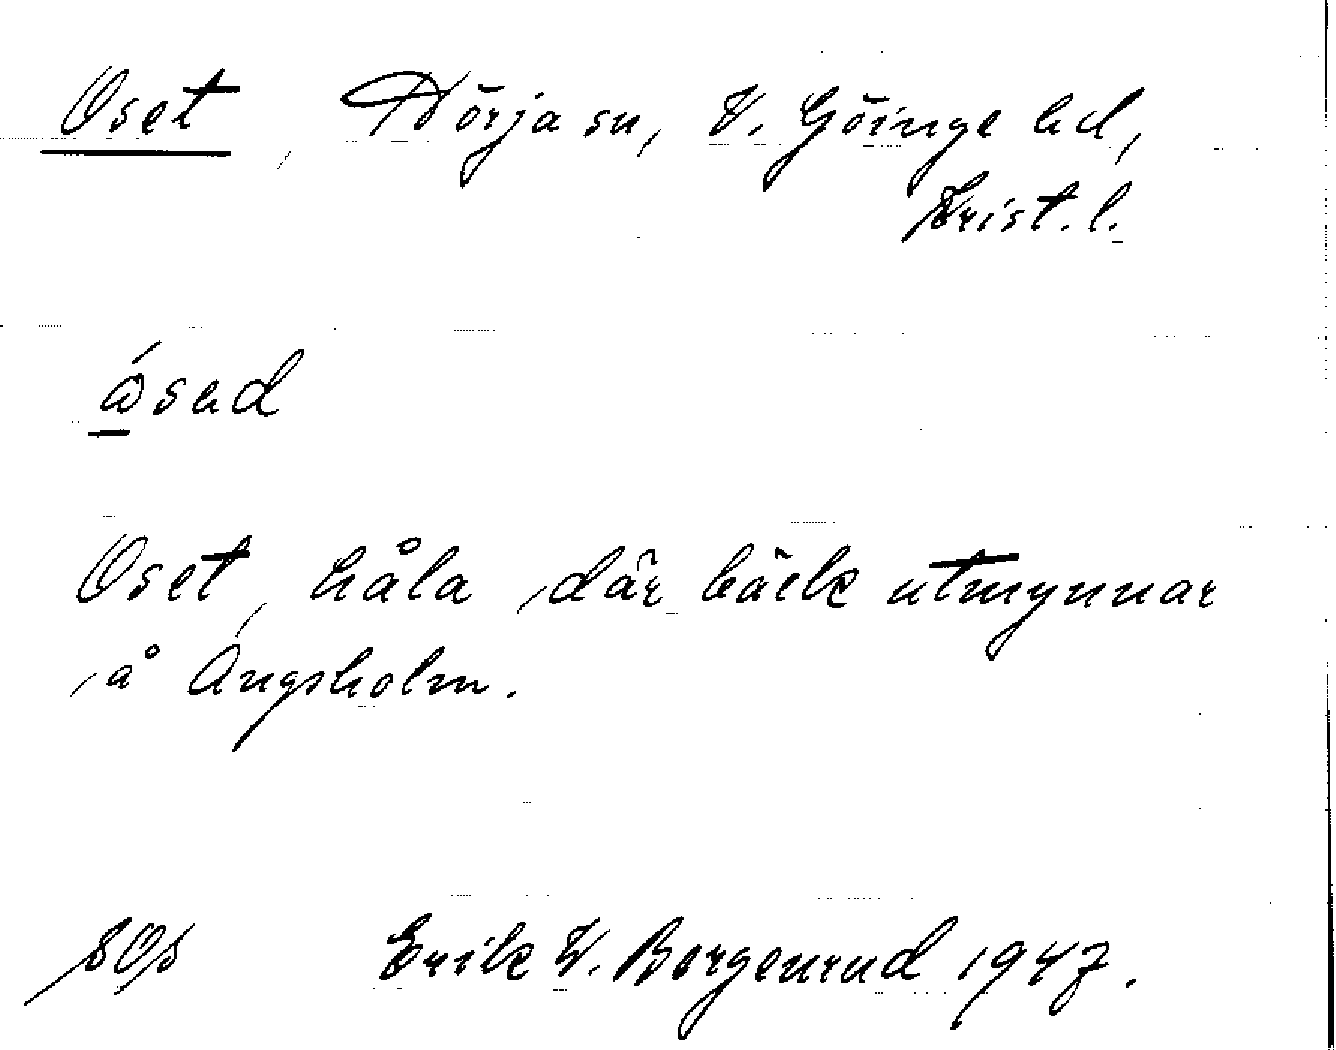 Oset, Nörja sn, V. Göinge hd,
Krist. l.
ósad
Oset, håla, där bäck utmynnar
, å Ängsholm.
Erik W. Borgenrud 1947.